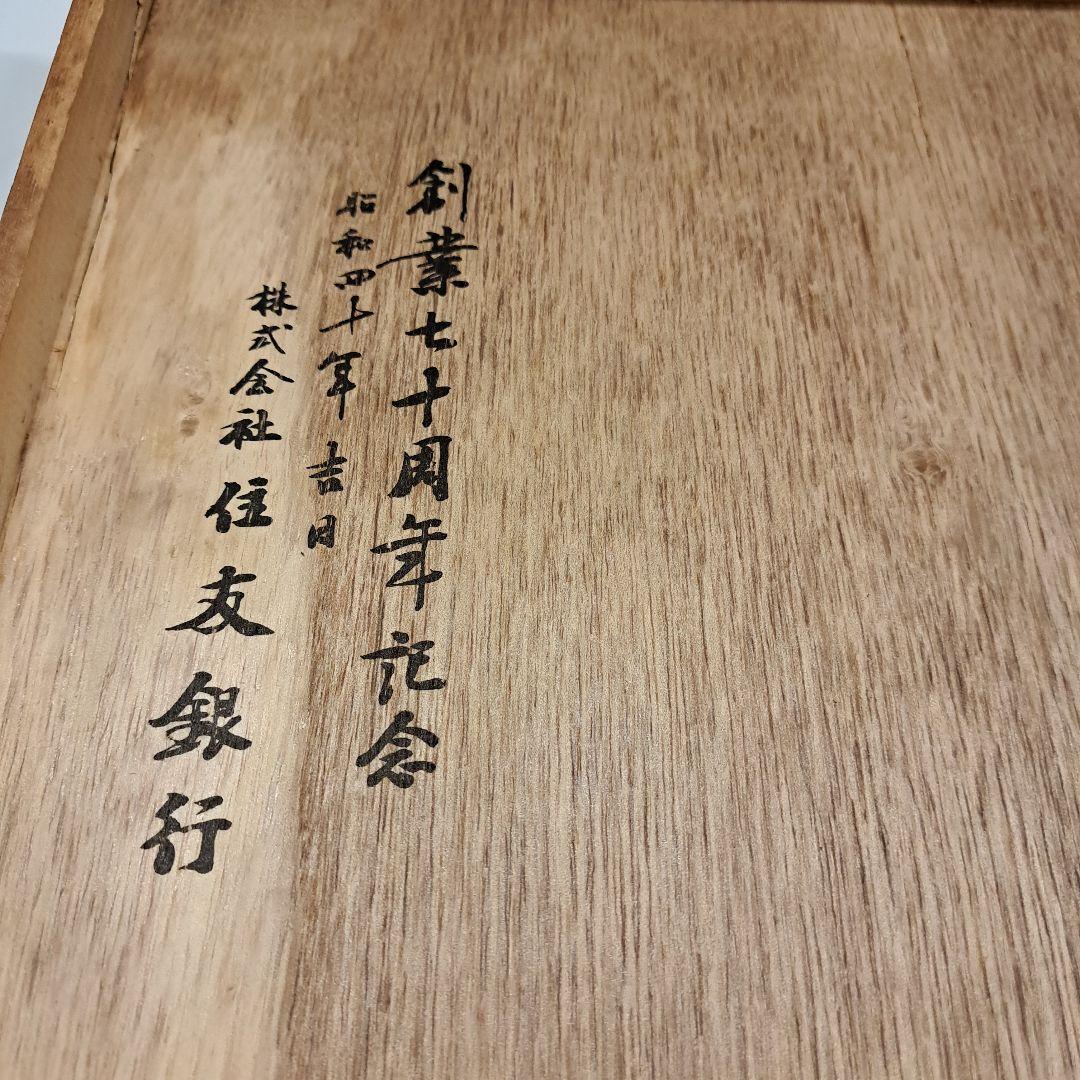 創業七十周年記念
昭和四十年吉日
株式会社住友銀行